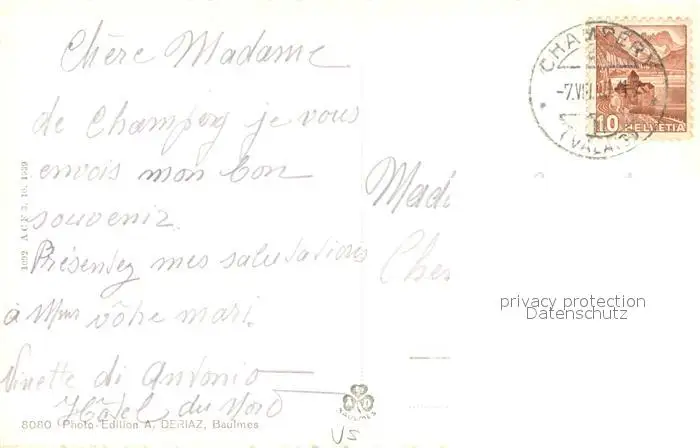 Chère Madame
de Champéry je vous
envois mon bon
souvenir.
Présentez mes salutations
à Mmr vôtre mari.
Ninette di Antonio
Hôtel du Nord
8080 Photo-Edition A. DERIAZ, Baulmes
1092 A.C.F. 3. 10. 1939
BAULMES
VS
CHAMPERY
-7.VIII.
(VALAIS)
10 HELVETIA
Mad
Che
privacy protection
Datenschutz